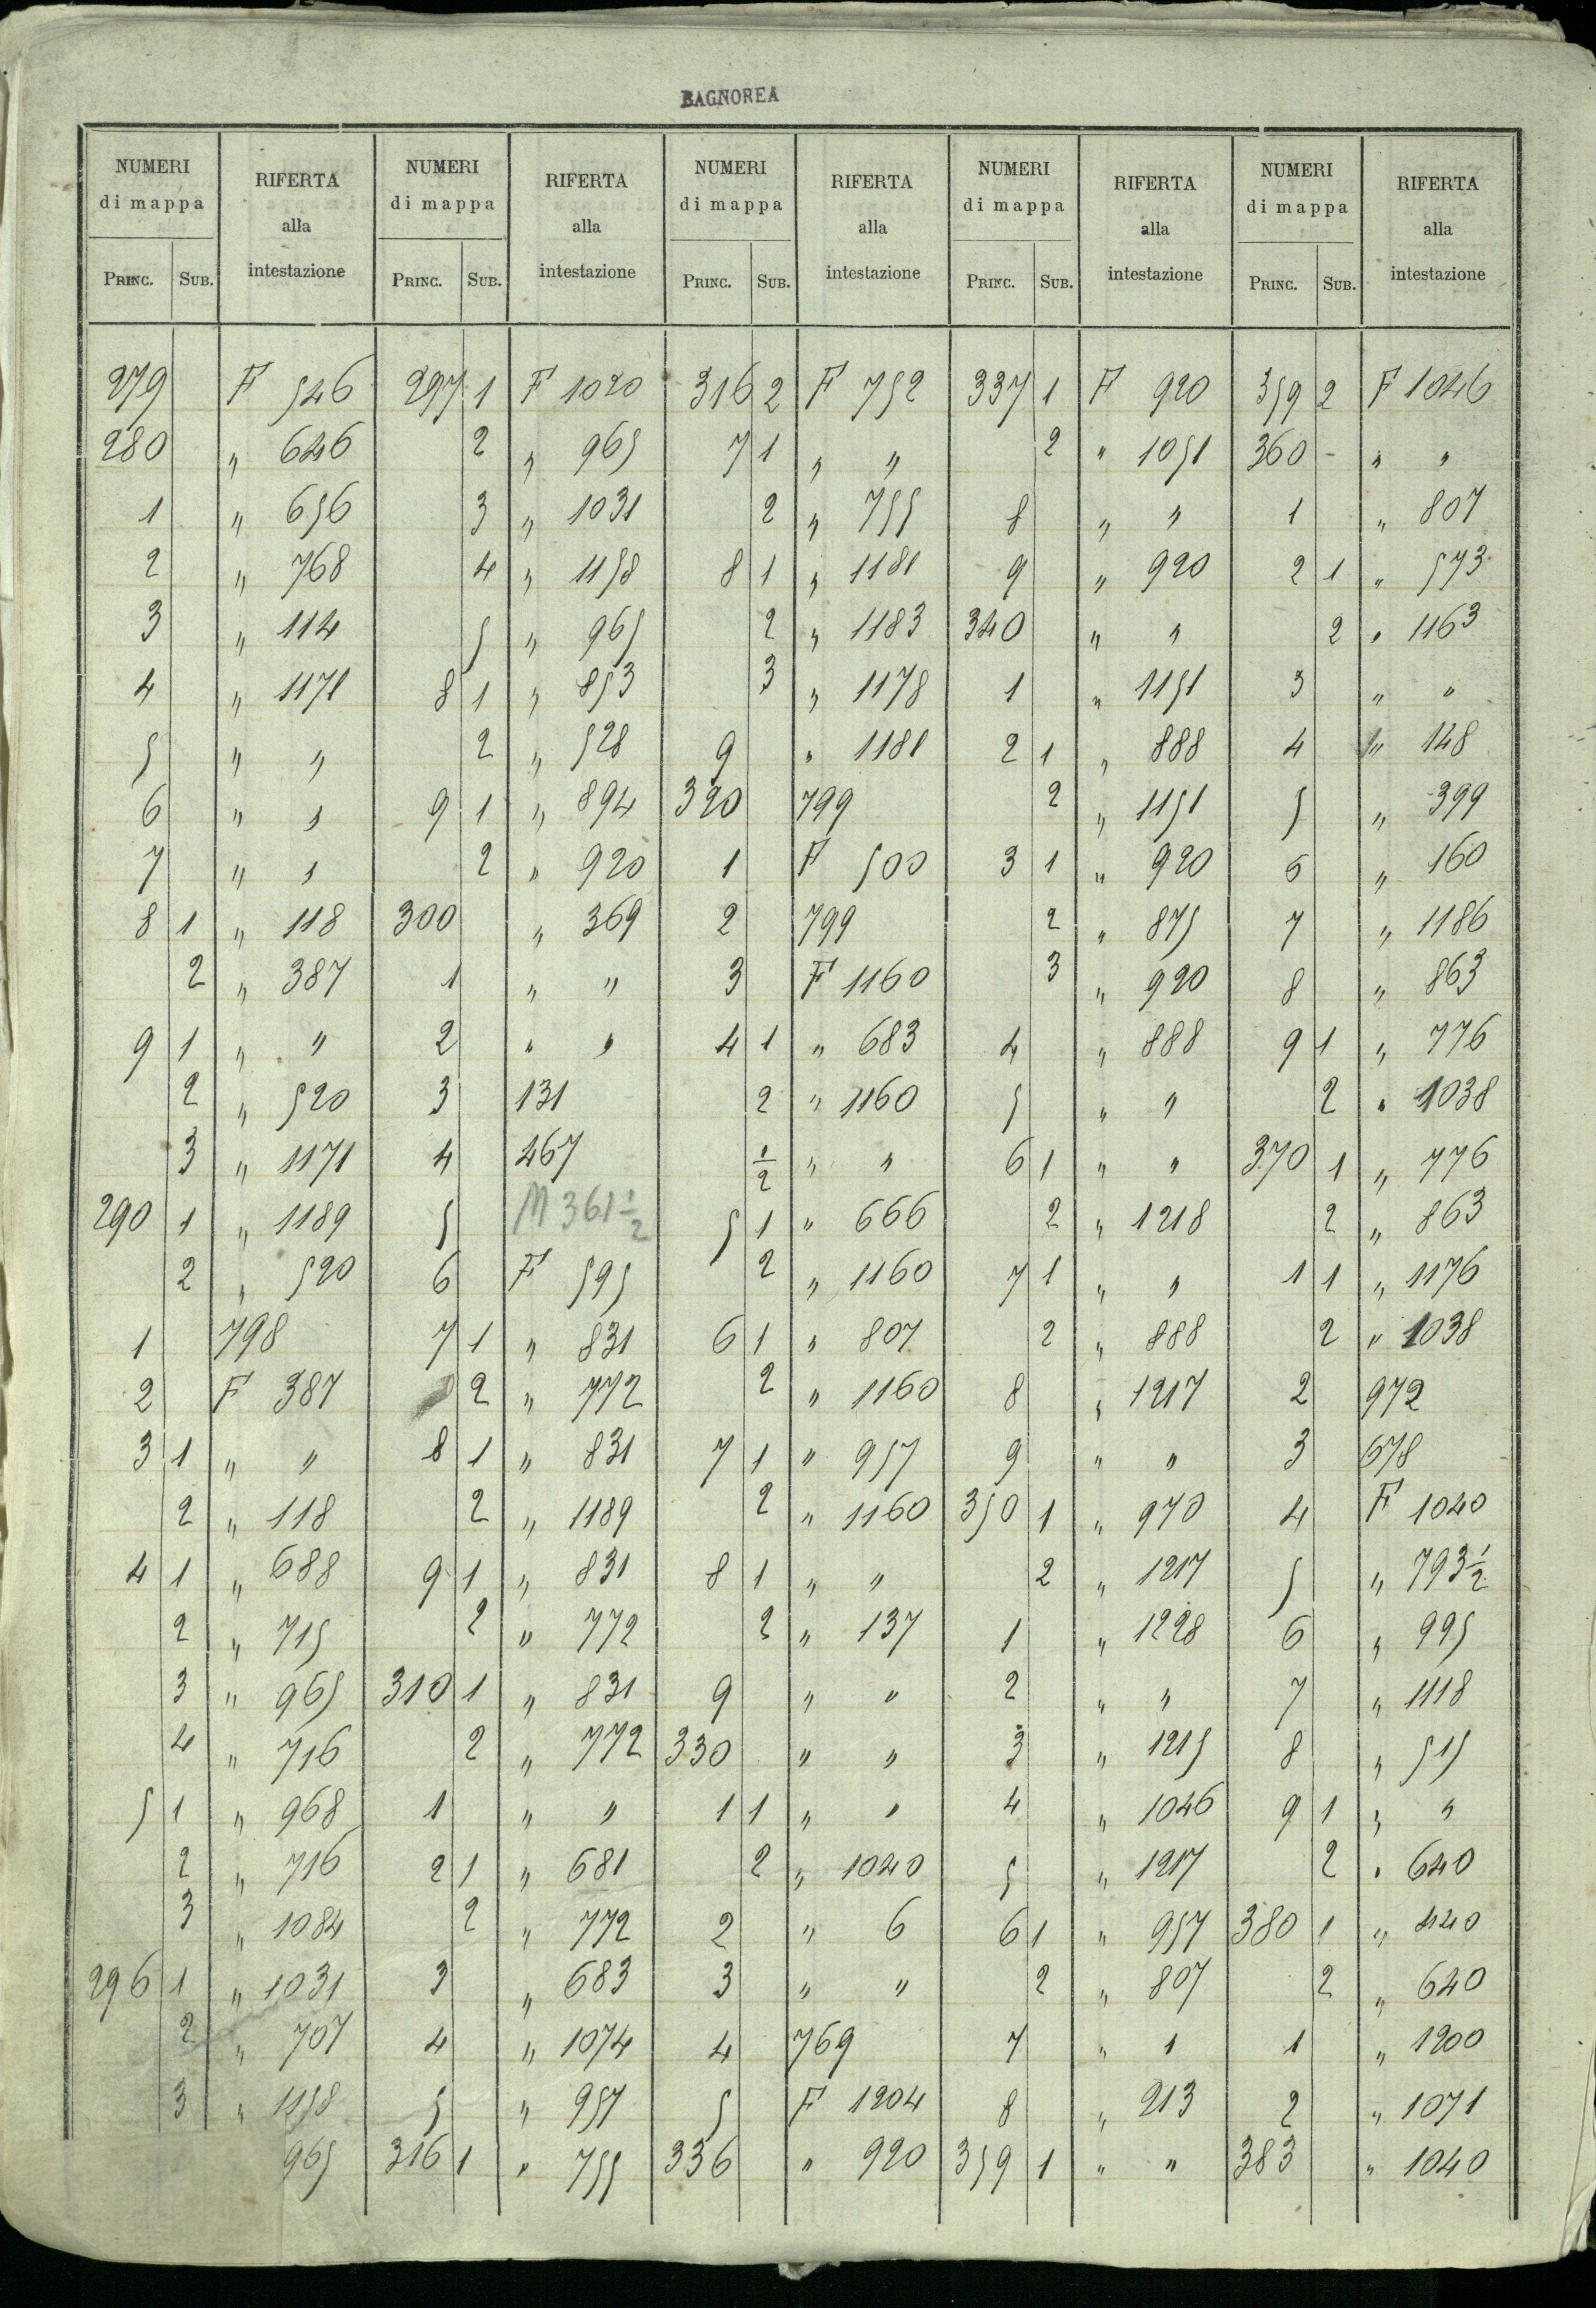 BAGNOREA
NUMERI di mappa RIFERTA alla intestazione NUMERI di mappa RIFERTA alla intestazione NUMERI di mappa RIFERTA alla intestazione NUMERI di mappa RIFERTA alla intestazione NUMERI di mappa RIFERTA alla intestazione
PRINC. SUB. PRINC. SUB. PRINC. SUB. PRINC. SUB. PRINC. SUB.
279 F 546 297 1 F 1020 316 2 F 752 337 1 F 920 359 2 F 1046
280 " 646 2 " 965 7 1 " " 2 " 1051 360 - " "
1 " 656 3 " 1031 2 " 755 8 " " 1 " 807
2 " 768 4 " 1158 8 1 " 1181 9 " 920 2 1 " 573
3 " 114 5 " 965 2 " 1183 340 " " 2 " 1163
4 " 1171 8 1 " 853 3 " 1178 1 " 1151 3 " "
5 " " 2 " 528 9 " 1181 2 1 " 888 4 " 148
6 " " 9 1 " 894 320 799 2 " 1151 5 " 399
7 " " 2 " 920 1 F 500 3 1 " 920 6 " 160
8 1 " 118 300 " 369 2 799 2 " 875 7 " 1186
2 " 387 1 " " 3 F 1160 3 " 920 8 " 863
9 1 " " 2 " " 4 1 " 683 4 " 888 9 1 " 776
2 " 520 3 131 2 " 1160 5 " " 2 " 1038
3 " 1171 4 467 1/2 " " 6 1 " " 370 1 " 776
290 1 " 1189 5 M 361 1/2 5 1 " 666 2 " 1218 2 " 863
2 " 520 6 F 595 2 " 1160 7 1 " " 1 1 " 1176
1 798 7 1 " 831 6 1 " 807 2 " 888 2 " 1038
2 F 387 2 " 772 2 " 1160 8 " 1217 2 972
3 1 " " 8 1 " 831 7 1 " 957 9 " " 3 678
2 " 118 2 " 1189 2 " 1160 350 1 " 970 4 F 1040
4 1 " 688 9 1 " 831 8 1 " " 2 " 1217 5 " 793 1/2
2 " 715 2 " 772 2 " 137 1 " 1228 6 " 995
3 " 965 310 1 " 831 9 " " 2 " " 7 " 1118
4 " 716 2 " 772 330 " " 3 " 1215 8 " 515
5 1 " 968 1 " " 1 1 " " 4 " 1046 9 1 " "
2 " 716 2 1 " 681 2 " 1040 5 " 1217 2 " 640
3 " 1084 2 " 772 2 " 6 6 1 " 957 380 1 " 440
296 1 " 1031 3 " 683 3 " " 2 " 807 2 " 640
2 " 707 4 " 1074 4 769 7 " " 1 " 1200
3 " 1158 5 " 957 5 F 1204 8 " 213 2 " 1071
965 316 1 " 755 336 " 920 359 1 " " 383 " 1040